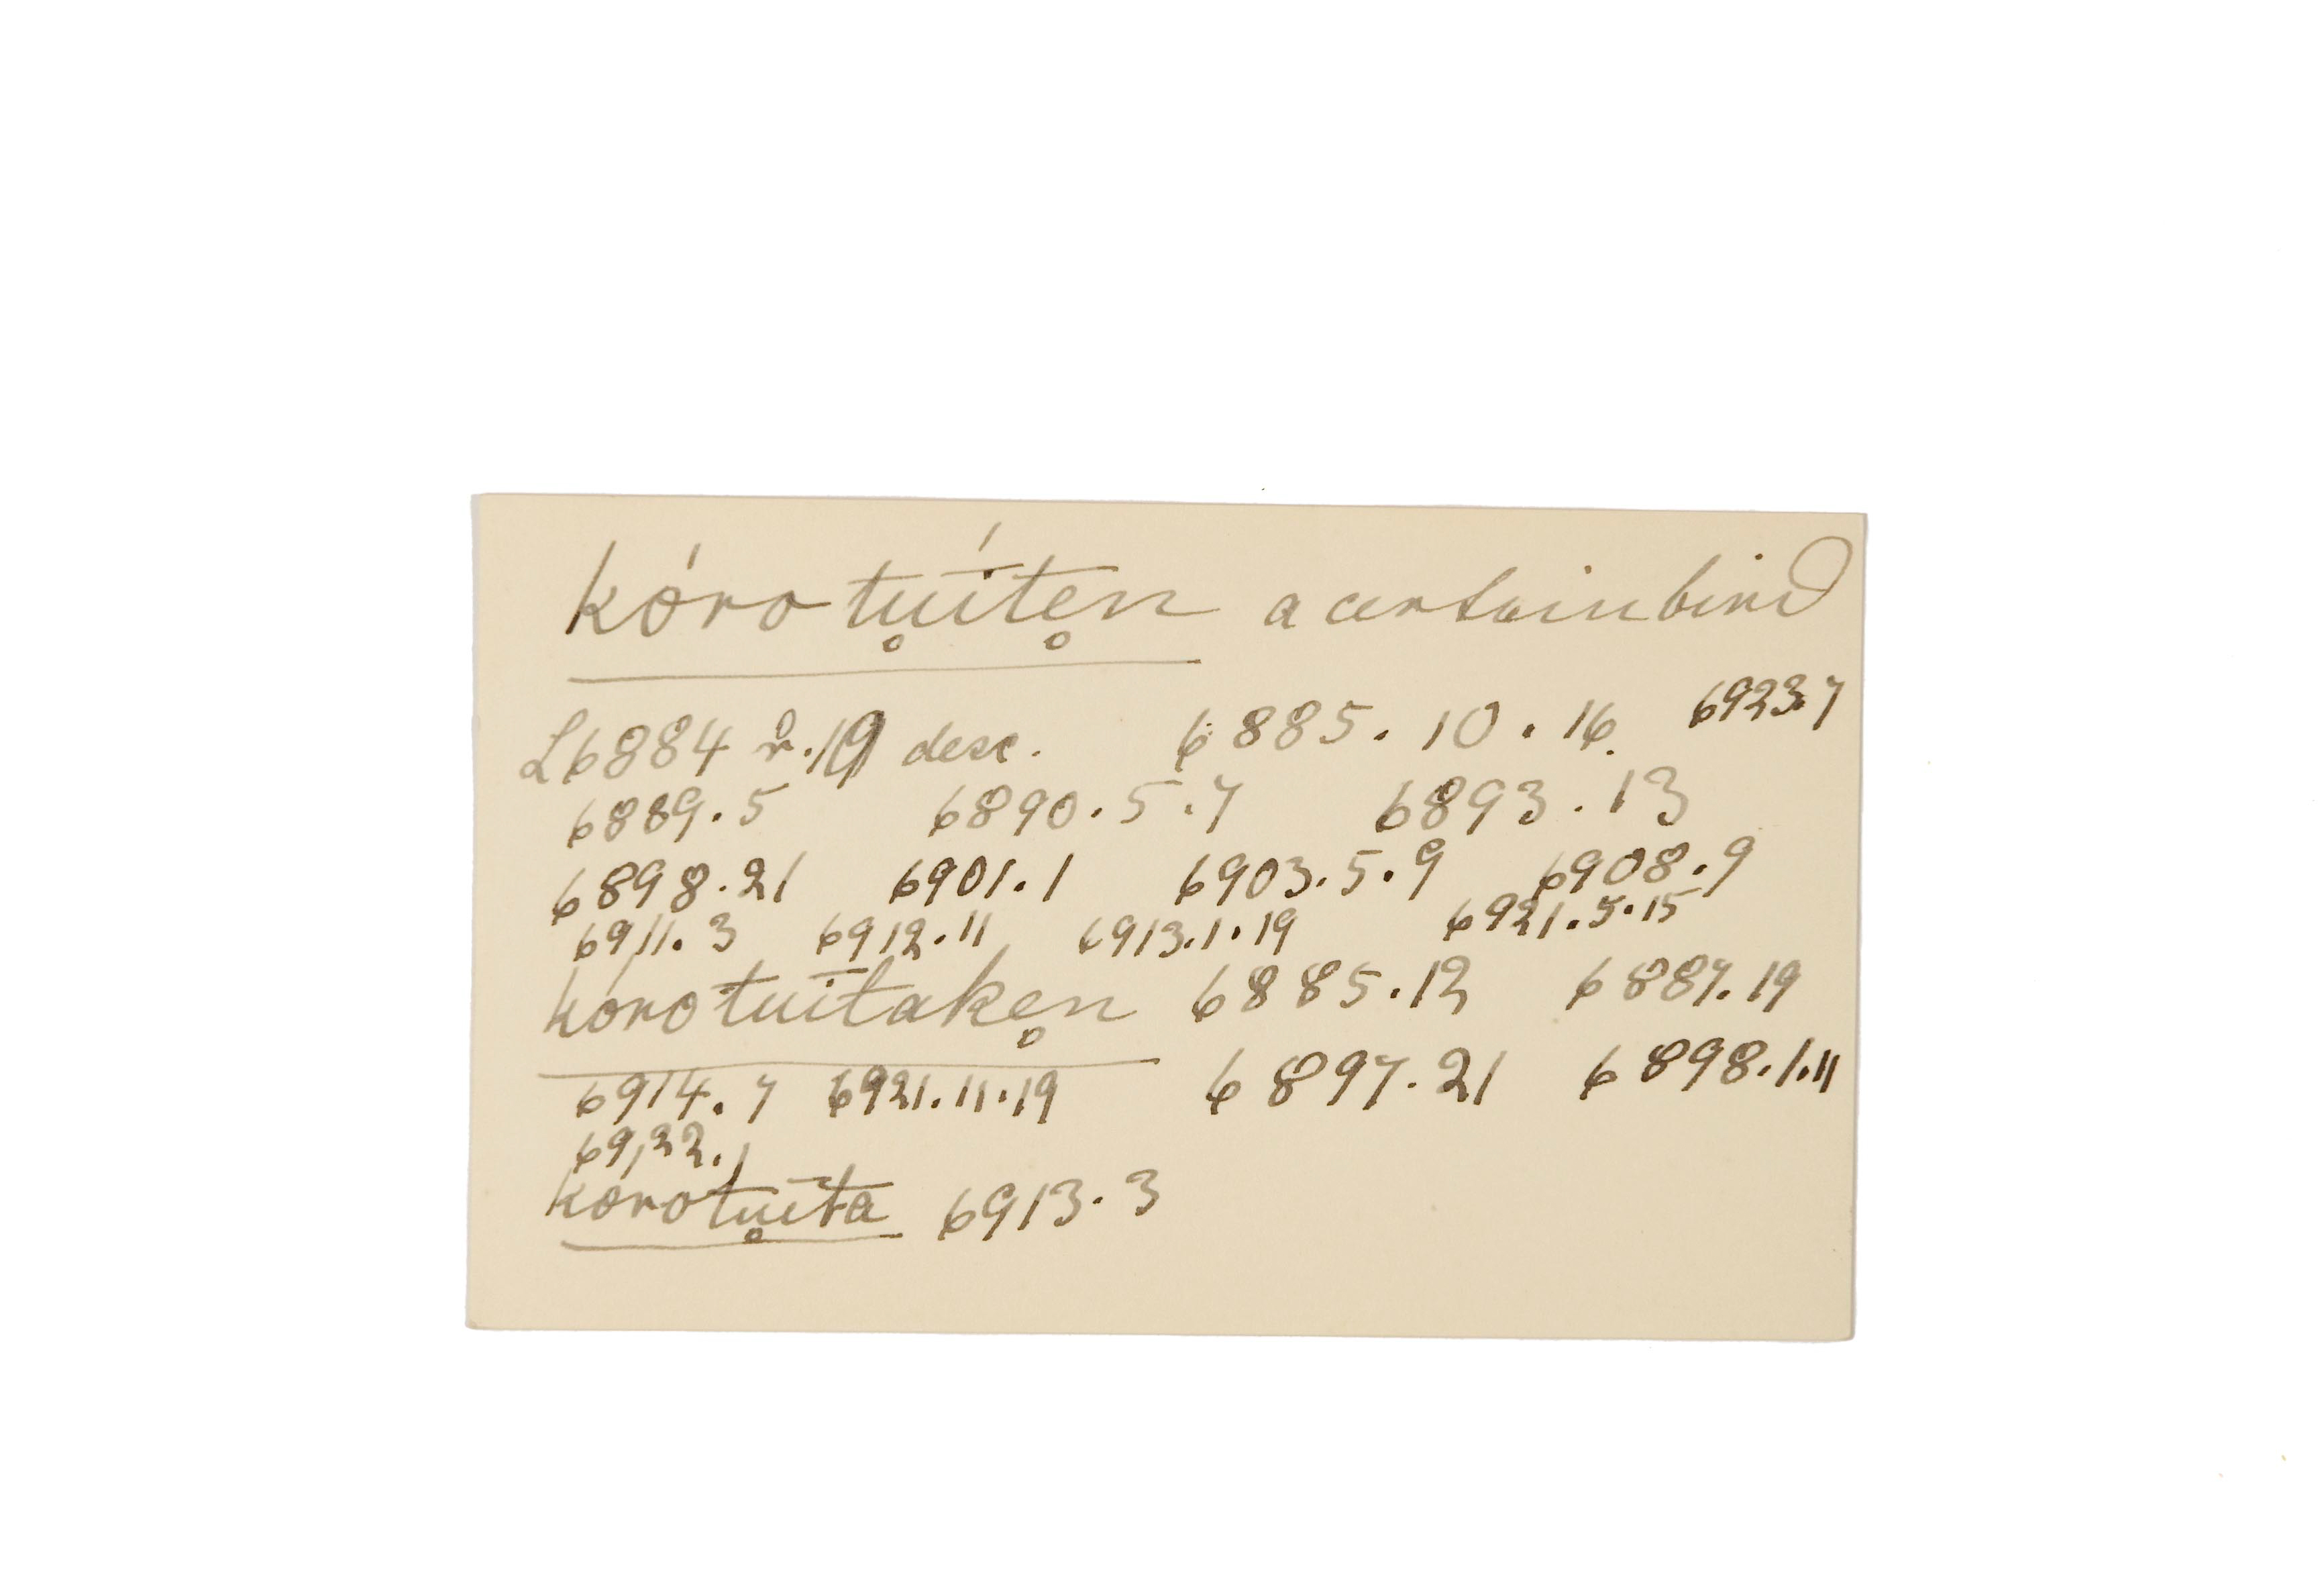 kórotu̥ī́te̥n a certain bird
L 6884 r̊.19 desc. 6885.10.16. 6923.7
6889.5 6890.5.7 6893.13
6898.21 6901.1 6903.5.9 6908.9
6911.3 6912.11 6913.1.19 6921.5.15
kórotuī́take̥n 6885.12 6887.19
6914.7 6921.11.19 6897.21 6898.1.11
6922.1
korotu̥īta 6913.3